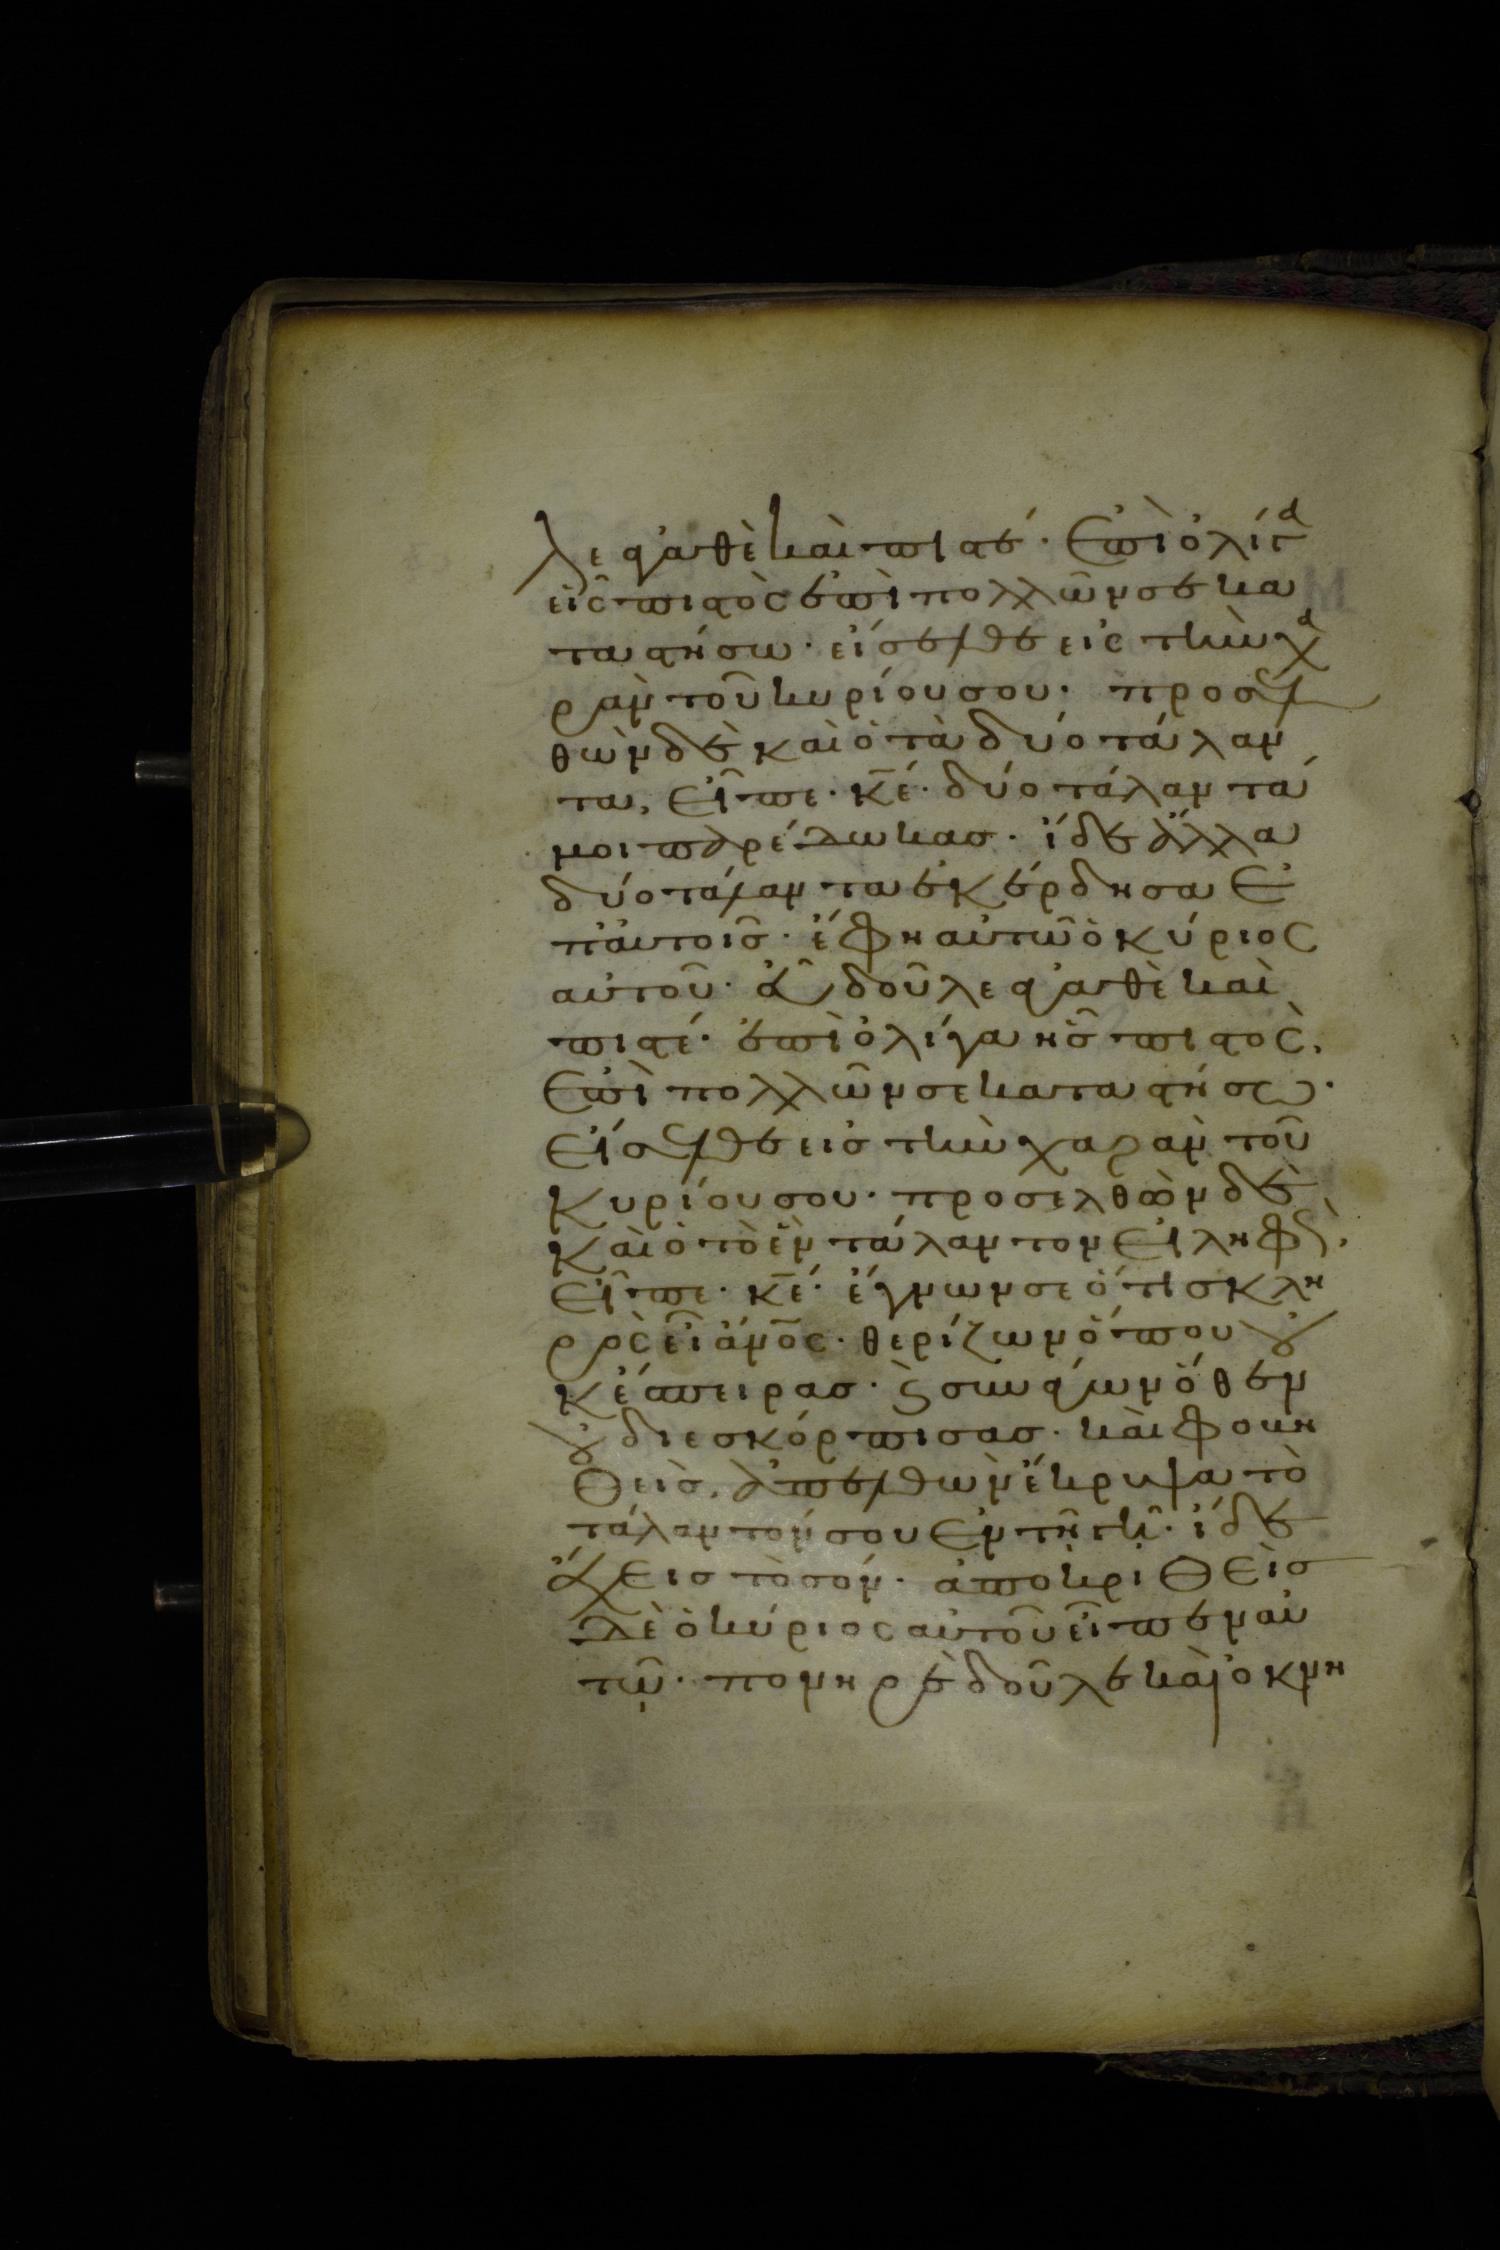 λε ἀγαθὲ καὶ πιστέ· ἐπὶ ὀλίγα
εἶς πιστὸς ἐπὶ πολλῶν σε κα
ταστήσω· εἴσελθε εἰς τὴν χα
ρὰν τοῦ κυρίου σου· προσελ
θὼν δὲ καὶ ὁ τὰ δύο τάλαν
τα, εἶπε· κ̅ε̅· δύο τάλαντά
μοι παρέδωκας· ἴδε ἄλλα
δύο τάλαντα ἐκέρδησα ἐ
π' ἀυτοῖς· ἔφη αὐτῶ ὁ κύριος
αὐτοῦ· εὖ δοῦλε ἀγαθὲ καὶ
πιστέ· ἐπὶ ὀλίγα ἦς πιστὸς,
ἐπὶ πολλῶν σε καταστήσω·
εἴσελθε εἰς τὴν χαρὰν τοῦ
κυρίου σου· προσελθὼν δὲ
καὶ ὁ τὸ ἓν τάλαντον εἰληφὼς,
εἶπε· κ̅ε̅· ἔγνων σε ὅτι σκλη
ρὸς εἶ ἄν̅ο̅ς· θερίζων ὅπου οὐ
κ ἔσπειρας· κ συνάγων ὅθεν
οὐ διεσκόρπισας· καὶ φοβη
θεὶς, ἀπελθὼν ἔκρυψα τὸ
τάλαντόν σου ἐν τῆ γῆ· ἴδε
ἔχεις τὸ σόν· ἀποκριθεὶς
δὲ ὁ κύριος αὐτοῦ εἶπεν αὐ
τῷ· πονηρὲ δοῦλε καὶ ὀκνη